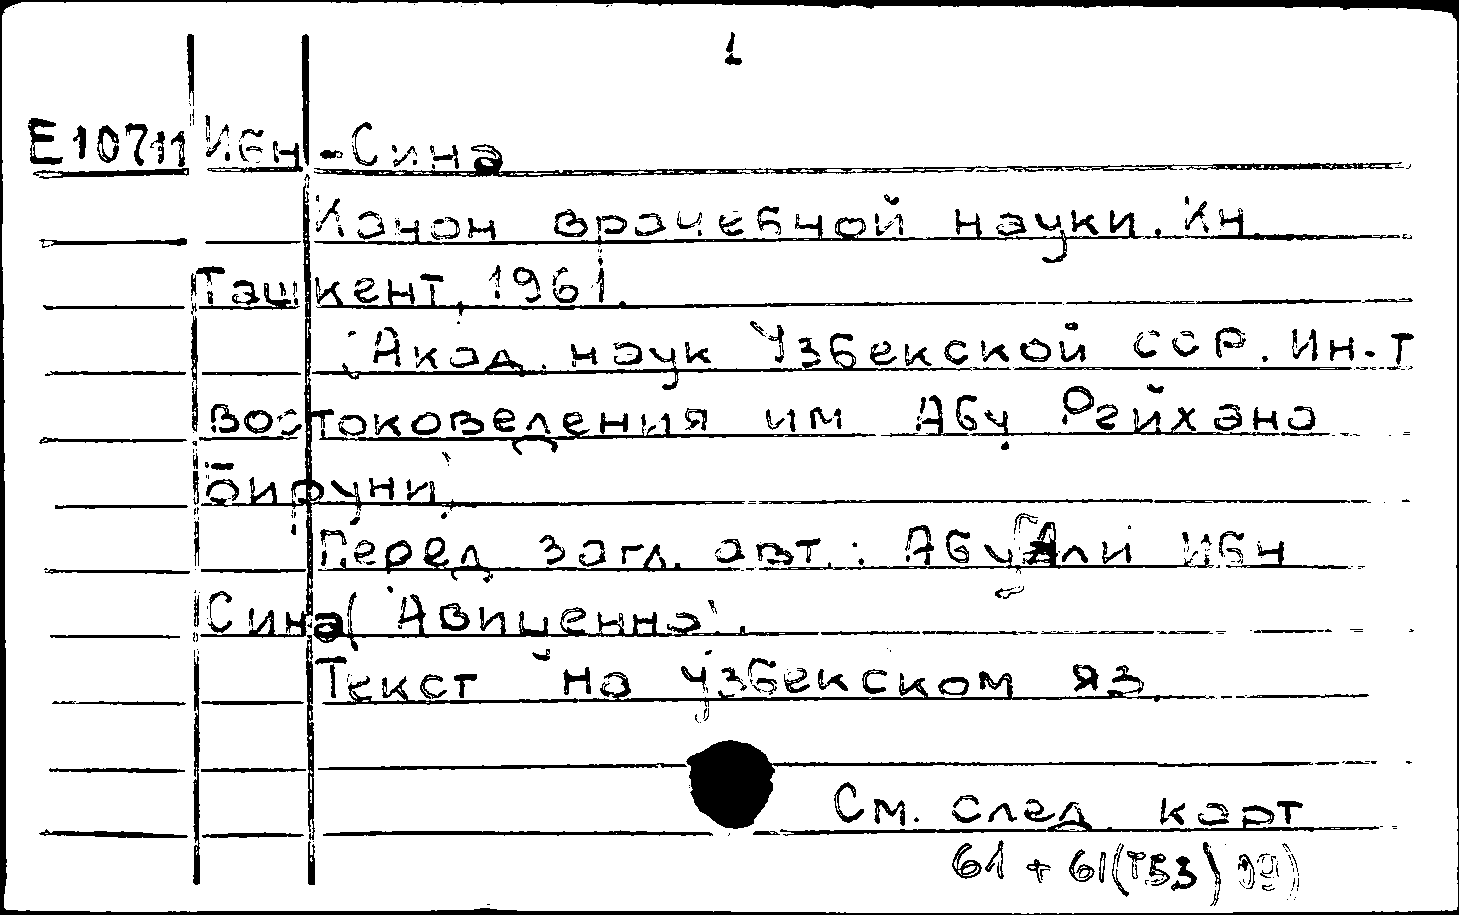 1
Е10711 Ибн-Сина
Канон врачебной науки. Кн.
Ташкент, 1961.
(Акад. наук Узбекской ССР. Ин-т
востоковедения им Абу Рейхана
Бируни)
Перед загл. авт.: Абу Али Ибн
Сина (Авиценна).
Текст на узбекском яз.
См. след. карт
61 + 61(